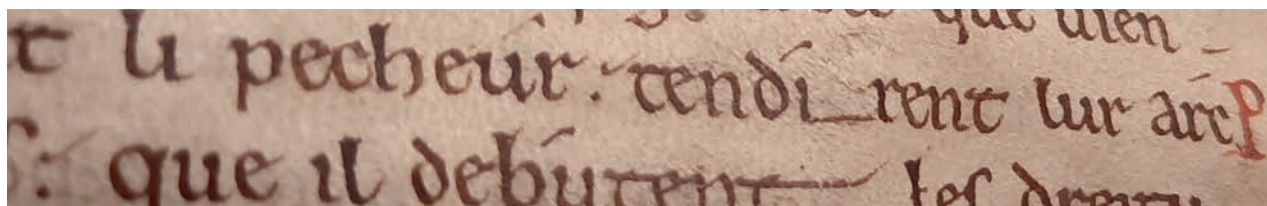 que uien -
t li pecheur · tendi_rent lur arc P
: que il debutent les